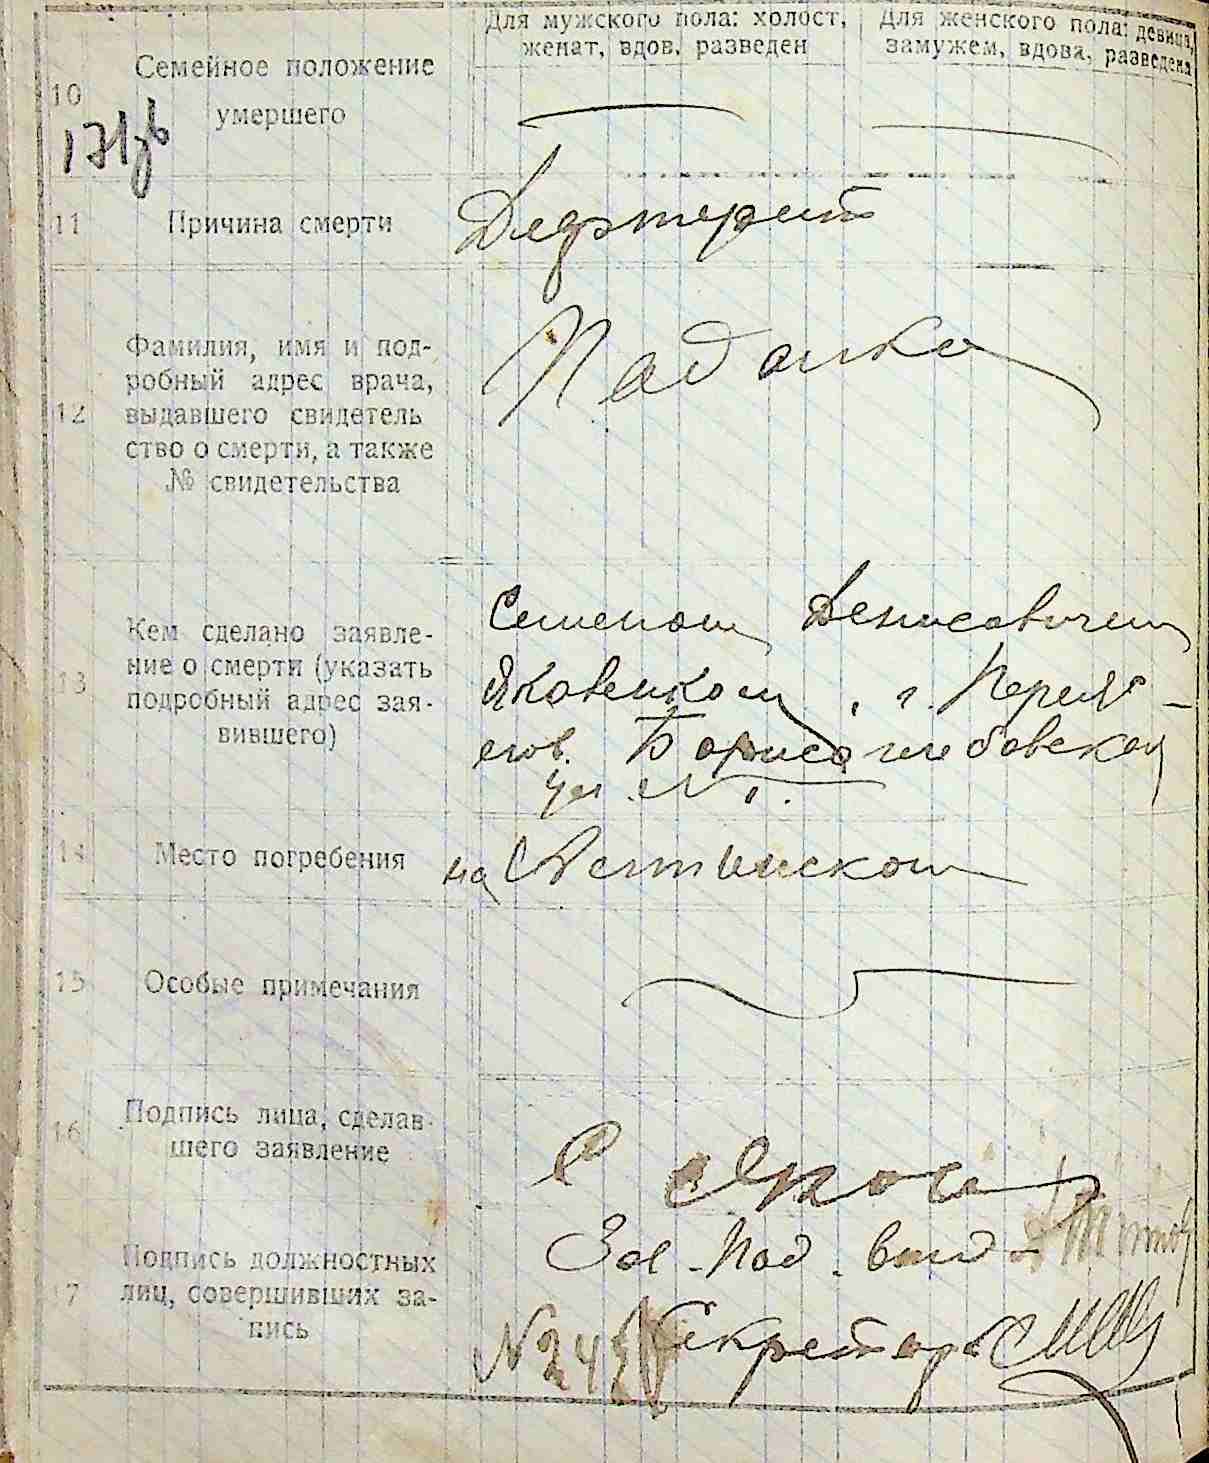 Для мужского пола: холост,
женат, вдов, разведен
Для женского пола: девица,
замужем, вдова, разведена
10
Семейное положение
умершего
11
Причина смерти
Дефтерит
12
Фамилия, имя и под-
робный адрес врача,
выдавшего свидетель
ство о смерти, а также
№ свидетельства
13
Кем сделано заявле-
ние о смерти (указать
подробный адрес зая-
вившего)
Семеном Денисовичем
Яковенком, г. Переяс-
лов. Борисоглебовская
ул. №
14
Место погребения
на
15
Особые примечания
16
Подпись лица, сделав-
шего заявление
С
17
Подпись должностных
лиц, совершивших за-
пись
Зав.
Секретарь